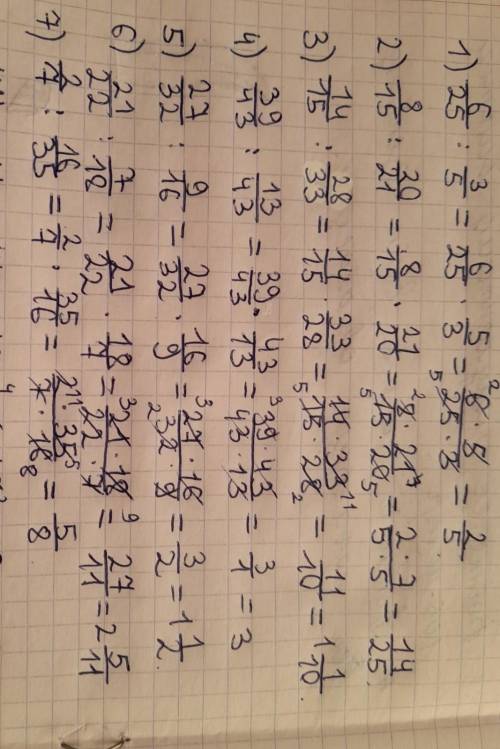 1) 6/25 : 3/5 = 6/25 · 5/3 = 6·5/25·3 = 2/5
2) 8/15 : 20/21 = 8/15 · 21/20 = 8·21/15·20 = 2·7/5·5 = 14/25
3) 14/15 : 28/33 = 14/15 · 33/28 = 14·33/15·28 = 11/10 = 1 1/10
4) 39/43 : 13/43 = 39/43 · 43/13 = 39·43/43·13 = 3/1 = 3
5) 27/32 : 9/16 = 27/32 · 16/9 = 27·16/32·9 = 3/2 = 1 1/2
6) 21/22 : 7/18 = 21/22 · 18/7 = 21·18/22·7 = 27/11 = 2 5/11
7) 2/7 : 16/35 = 2/7 · 35/16 = 2·35/7·16 = 5/8